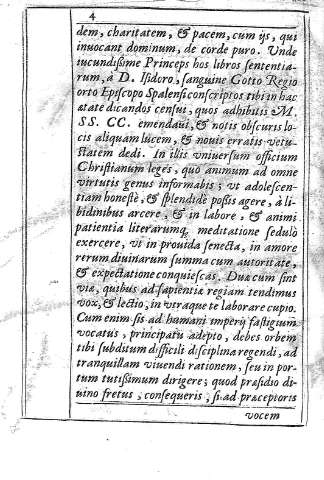 4
dem, charitatem, & pacem, cum ijs, qui
inuocant dominum, de corde puro. Unde
iucundissime Princeps hos libros sententia-
rum, à D. Isidoro, sanguine Gotto Regio
orto Episcopo Spalensi conscriptos tibi in hac
ætate dicandos censui, quos adhibitis M.
SS. CC. emendaui, & notis obscuris lo-
cis aliquam lucem, & nouis erratis vetu-
statem dedi. In illis vniuersum officium
Christianum leges, quo animum ad omne
virtutis genus informabis; vt adolescen-
tiam honestè, & splendidè possis agere, à li-
bidinibus arcere, & in labore, & animi
patientia literarumq. meditatione sedulò
exercere, vt in prouida senecta, in amore
rerum diuinarum summa cum autoritate,
& expectatione conquiescas. Duæ cum sint
viæ, quibus ad sapientiæ regiam tendimus
vox, & lectio, in vtraque te laborare cupio.
Cum enim sis ad humani imperij fastigium
vocatus, principatu adepto, debes orbem
tibi subditum difficili disciplina regendi, ad
tranquillam viuendi rationem, seu in por-
tum tutissimum dirigere; quod præsidio di-
uino fretus, consequeris, si ad præceptoris
vocem